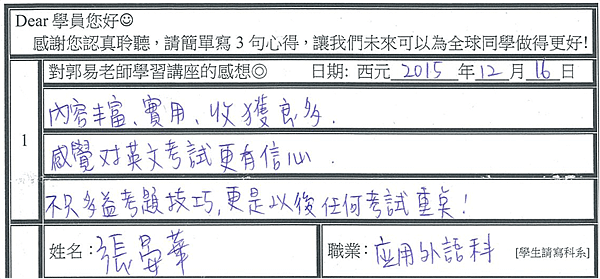 Dear 學員您好☺
感謝您認真聆聽，請簡單寫 3 句心得，讓我們未來可以為全球同學做得更好!
對郭易老師學習講座的感想◎ 日期: 西元 2015 年 12 月 16 日
1
內容丰富、實用、收獲良多.
感覺对英文考試更有信心.
不只多益考題技巧,更是以後任何考試重點!
姓名: 張晏華 職業: 应用外語科 [學生請寫科系]